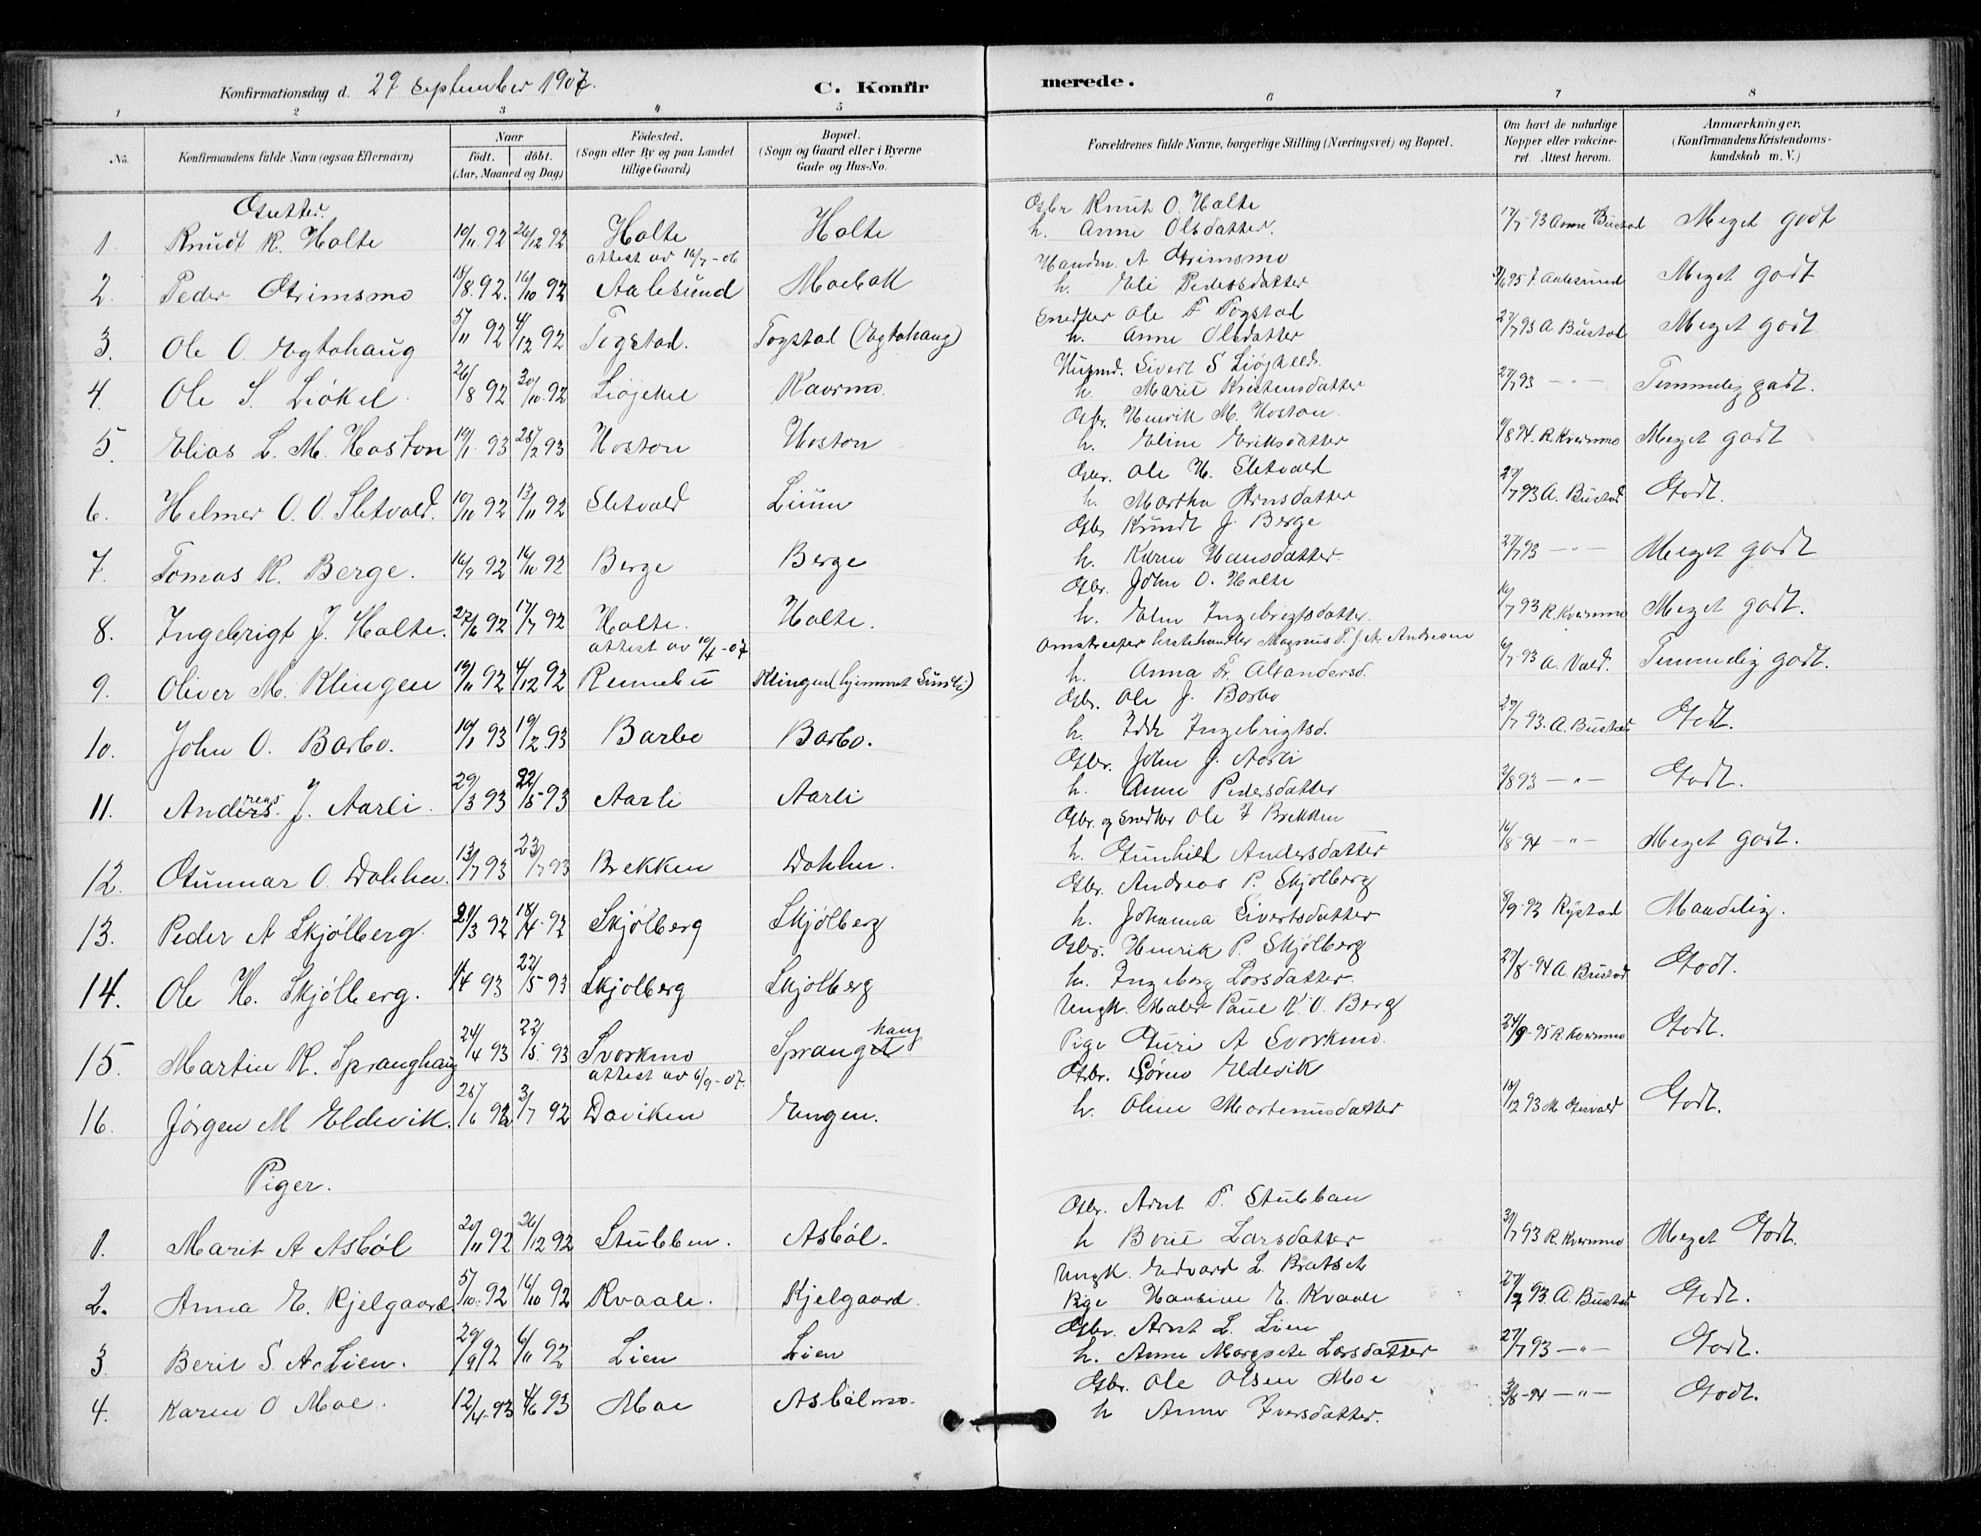 Konfirmationsdag d. 29 September 1907.
C. Konfirmerede.
1 2 3 4 5 6 7 8
No.
Konfirmandens fulde Navn (ogsaa Efternavn)
Naar
födt. döbt.
(Aar, Maaned og Dag)
Födested.
(Sogn eller By og paa Landet tillige Gaard)
Bopæl.
(Sogn og Gaard eller i Byerne Gade og Hus-No.
Forældrenes fulde Navne, borgerlige Stilling (Næringsvei) og Bopæl.
Om havt de naturlige Kopper eller vakcineret. Attest herom.
Anmærkninger.
(Konfirmandens Kristendomskundskab m. V.)
Gutter.
Gbr Knut O. Holte
1 Knudt K. Holte 10/11 92 26/12 92 Holte Holte h. Anne Olsdatter. 17/7-93 Anne Bustad Meget godt
attest av 16/7-06
Husm. A. Grimsmo
2. Peder Grimsmo 18/8.92. 16/10 92 Aalesund Moebak h. Eli Pedersdatter 7/6 95 F. Aalesund Meget godt
Snedker Ole F Fogstad
3. Ole O. Egtahaug 5/11 92 4/12 92 Fogstad. Fogstad (Egtahaug) h. Anne Olsdatter 27/7 93 A. Bustad Meget godt
Husmd. Sivert S Liøjkell.
4. Ole S. Liøkel. 26/8 92 30/10.92 Liøjekel Kaarmo. h. Marit Kristensdatter 27/7 93 —"— Temmelig godt.
Gbr. Henrik M. Hoston.
5. Elias L. M. Hoston 19/1 93 26/2 93 Hoston Hoston h. Eline Eriksdatter 9/8 94. R. Kvernmo Meget godt
Gbr. Ole H. Sletvold
6. Helmer O. O. Sletvold. 10/10 92 13/11 92 Sletvold Lium h. Martha Arnsdatter 27/7 93 A. Bustad. Godt.
Gbr Knudt J. Berge
7. Tomas K. Berge. 16/9 92 16/10 92 Berge Berge h. Karen Hansdatter. 27/7 93 —"— Meget godt
Gbr. John O. Holte
8. Ingebrigt J. Holte. 27/6 92 17/7 92 Holte. Holte. h. Elen Ingebrigtsdatter. 16/7 93 R. Kvernmo Meget godt.
attest av 10/4-07
Magnus F. J. A. Andresen
9. Oliver M. Klingen 19/11 92 4/12 92 Rennebu Klingen (hjemmet Sundli) h. Anna Fr. Alxandersd. 6/7 93 A. Vold. Temmelig godt.
Gbr. Ole J. Barbo
10. John O. Barbo. 10/1 93 19/2.93 Barbo Barbo. h. Idde Ingebrigtsd. 27/7 93. A. Bustad Godt.
Gbr. John J. Aarli
11. Andreas J. Aarli. 29/3 93 22/5-93 Aarli Aarli h. Anne Pedersdatter 2/8 93 —"— Godt.
Gbr. og Snedker Ole J Brekken
12. Gunnar O. Dahlen. 13/7 93 23/7 93 Brekken Dahlen. h. Gunhild Andersdatter 16/8-94 —"— Meget godt.
Gbr. Andreas P. Skjölberg
13. Peder A Skjölberg. 21/3 92 18/4-92 Skjölberg Skjölberg h. Johanna Sivertsdatter 8/9-93 Rystad Maadelig.
Gbr. Henrik P. Skjölberg
14. Ole H. Skjölberg. 11/4 93 22/5 93 Skjolberg Skjolberg h. Ingeborg Larsdatter. 27/8-94 A. Bustad Godt.
Ungk. Maler Paul K. O. Berg
15. Martin K. Spranghaug 24/4 93 22/5 93 Svorkmo Spranghaug Pige Guri A Svorkmo. 24/9-95 R. Kvernmo Godt.
attest av 6/9-07.
Gbr. Søren Eldevik
16. Jørgen M. Eldevik. 25/6 92 31/7 92 Daviken Engen. h. Oline Martenusdatter 18/12 93 Godt.
Piger.
Gbr. Arnt P. Stubban
1. Marit A Asböl 20/11 92 26/12 92 Stubben. Asböl. h Beret Larsdatter 30/7 93 R. Kvernmo Meget Godt.
Ungk. Edvard L. Bratset
2. Anna E. Kjelgaard 5/10.92 16/10 92 Kvaale. Kjelgaard. Pige Hansine E. Kvaale 27/7 93. A. Bustad Godt.
Gbr. Arnt L. Lien
3 Berit S. A. Lien. 29/9 92 6/11 92 Lien Lien h. Anne Margrete Larsdatter 27/7 93 —"— Godt.
Gbr. Ole Olsen Moe
4. Karen O Moe. 12/4-93 4/6 93 Moe Asbölmo. h Anne Iversdatter. 3/8-94 —"— Godt.